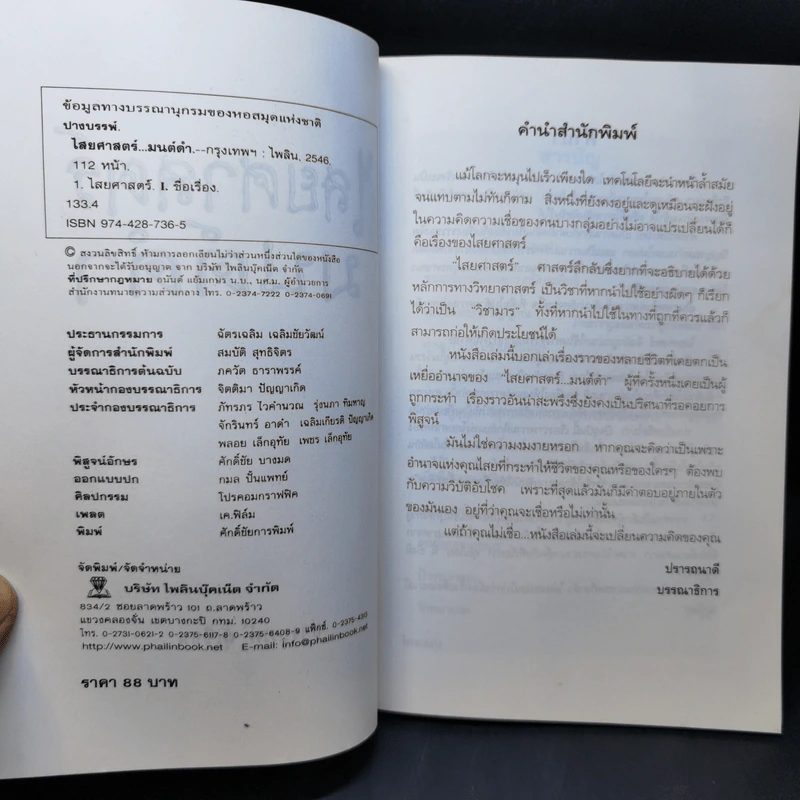 ข้อมูลทางบรรณานุกรมของหอสมุดแห่งชาติ
ปางบรรพ์.
ไสยศาสตร์...มนต์ดำ.--กรุงเทพฯ : ไพลิน, 2546.
112 หน้า.
1. ไสยศาสตร์. I. ชื่อเรื่อง.
133.4
ISBN 974-428-736-5
© สงวนลิขสิทธิ์ ห้ามการลอกเลียนไม่ว่าส่วนหนึ่งส่วนใดของหนังสือ
นอกจากจะได้รับอนุญาต จาก บริษัท ไพลินบุ๊คเน็ต จำกัด
ที่ปรึกษากฎหมาย อนันต์ แย้มเกษร น.บ., นศ.ม. ผู้อำนวยการ
สำนักงานทนายความส่วนกลาง โทร. 0-2374-7222 0-2374-0691
ประธานกรรมการ ฉัตรเฉลิม เฉลิมชัยวัฒน์
ผู้จัดการสำนักพิมพ์ สมบัติ สุทธิจิตร
บรรณาธิการต้นฉบับ ภควัต ธาราพรรค์
หัวหน้ากองบรรณาธิการ จิตติมา ปัญญาเกิด
ประจำกองบรรณาธิการ ภัทรภร ไวคำนวณ รุ่งนภา ทิมหาญ
จักรินทร์ อาดำ เฉลิมเกียรติ ปัญญาเกิด
พลอย เล็กอุทัย เพชร เล็กอุทัย
พิสูจน์อักษร ศักดิ์ชัย บางมด
ออกแบบปก กมล ปั้นแพทย์
ศิลปกรรม โปรคอมกราฟฟิค
เพลต เค.ฟิล์ม
พิมพ์ ศักดิ์ชัยการพิมพ์
จัดพิมพ์/จัดจำหน่าย
บริษัท ไพลินบุ๊คเน็ต จำกัด
834/2 ซอยลาดพร้าว 101 ถ.ลาดพร้าว
แขวงคลองจั่น เขตบางกะปิ กทม. 10240
โทร. 0-2731-0621-2 0-2375-6117-8 0-2375-6408-9 แฟ็กซ์. 0-2375-4313
http://www.phailinbook.net E-mail: info@phailinbook.net
ราคา 88 บาท
คำนำสำนักพิมพ์
แม้โลกจะหมุนไปเร็วเพียงใด เทคโนโลยีจะนำหน้าล้ำสมัย
จนแทบตามไม่ทันก็ตาม สิ่งหนึ่งที่ยังคงอยู่และดูเหมือนจะฝังอยู่
ในความคิดความเชื่อของคนบางกลุ่มอย่างไม่อาจแปรเปลี่ยนได้ก็
คือเรื่องของไสยศาสตร์
"ไสยศาสตร์" ศาสตร์ลึกลับซึ่งยากที่จะอธิบายได้ด้วย
หลักการทางวิทยาศาสตร์ เป็นวิชาที่หากนำไปใช้อย่างผิดๆ ก็เรียก
ได้ว่าเป็น "วิชามาร" ทั้งที่หากนำไปใช้ในทางที่ถูกที่ควรแล้วก็
สามารถก่อให้เกิดประโยชน์ได้
หนังสือเล่มนี้บอกเล่าเรื่องราวของหลายชีวิตที่เคยตกเป็น
เหยื่ออำนาจของ "ไสยศาสตร์...มนต์ดำ" ผู้ที่ครั้งหนึ่งเคยเป็นผู้
ถูกกระทำ เรื่องราวอันน่าสะพรึงซึ่งยังคงเป็นปริศนาที่รอคอยการ
พิสูจน์
มันไม่ใช่ความงมงายหรอก หากคุณจะคิดว่าเป็นเพราะ
อำนาจแห่งคุณไสยที่กระทำให้ชีวิตของคุณหรือของใครๆ ต้องพบ
กับความวิบัติอัปโชค เพราะที่สุดแล้วมันก็มีคำตอบอยู่ภายในตัว
ของมันเอง อยู่ที่ว่าคุณจะเชื่อหรือไม่เท่านั้น
แต่ถ้าคุณไม่เชื่อ...หนังสือเล่มนี้จะเปลี่ยนความคิดของคุณ
ปรารถนาดี
บรรณาธิการ